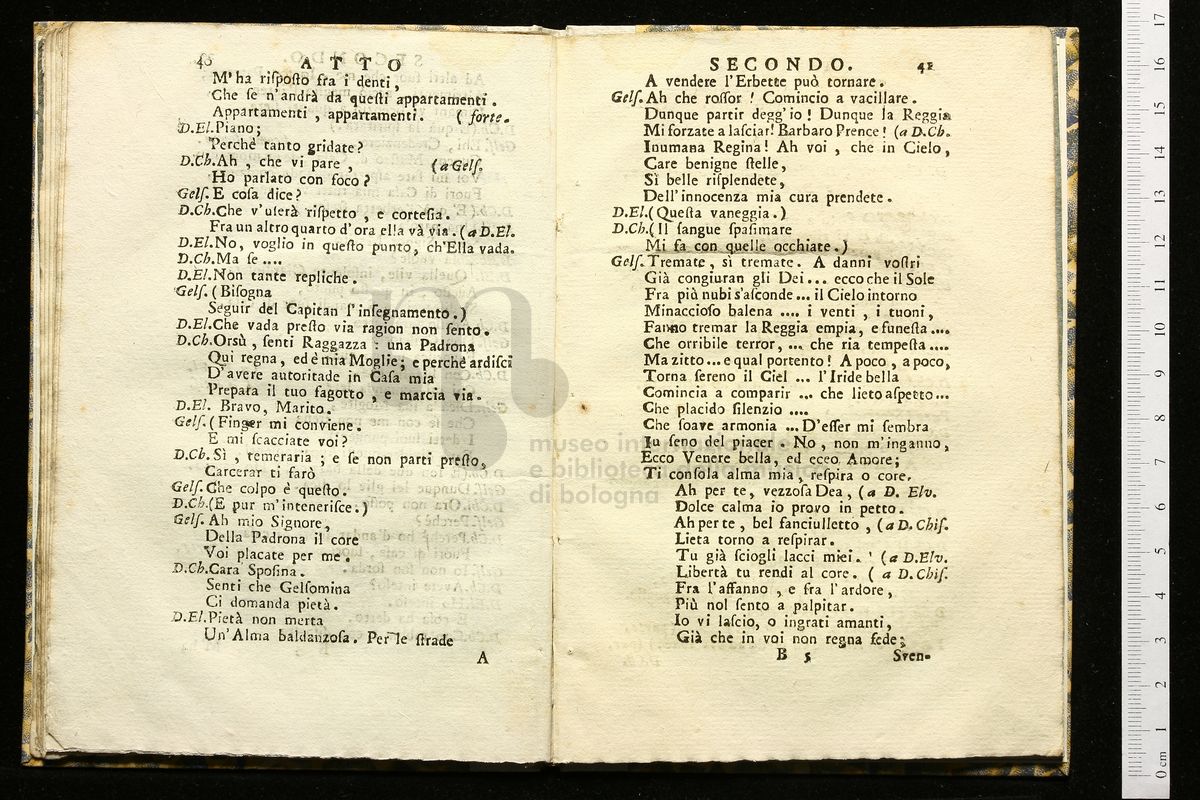 40 ATTO
M'ha riſpoſto fra i denti,
Che ſe n'andrà da queſti appartamenti.
Appartamenti, appartamenti. (forte.
D.El.Piano;
Perchè tanto gridate?
D.Ch.Ah, che vi pare, (a Gelſ.
Ho parlato con foco?
Gelſ.E coſa dice?
D.Ch.Che v'uſerà riſpetto, e corteſia.
Fra un altro quarto d'ora ella và via. (a D.El.
D.El.No, voglio in queſto punto, ch'Ella vada.
D.Ch.Ma ſe ....
D.El.Non tante repliche.
Gelſ.(Biſogna
Seguir del Capitan l'inſegnamento.)
D.El.Che vada preſto via ragion non ſento.
D.Ch.Orsù, ſenti Ragazza: una Padrona
Qui regna, ed è mia Moglie; e perchè ardiſci
D'avere autoritade in Caſa mia
Prepara il tuo fagotto, e marcia via.
D.El. Bravo, Marito.
Gelſ.(Finger mi conviene.
E mi ſcacciate voi?
D.Ch.Sì, temeraria; e ſe non parti preſto,
Carcerar ti farò
Gelſ.Che colpo è queſto.
D.Ch.(E pur m'inteneriſce.)
Gelſ.Ah mio Signore,
Della Padrona il core
Voi placate per me.
D.Ch.Cara Spoſina.
Senti che Gelſomina
Ci domanda pietà.
D.El.Pietà non merta
Un'Alma baldanzoſa. Per le ſtrade
A
SECONDO. 41
A vendere l'Erbette può tornare.
Gelſ.Ah che roſſor! Comincio a vacillare.
Dunque partir degg'io! Dunque la Reggia
Mi forzate a laſciar! Barbaro Prence! (a D.Ch.
Inumana Regina! Ah voi, che in Cielo,
Care benigne ſtelle,
Sì belle riſplendete,
Dell'innocenza mia cura prendete.
D.El.(Queſta vaneggia.)
D.Ch.(Il ſangue ſpaſimare
Mi fa con quelle occhiate.)
Gelſ.Tremate, sì tremate. A danni voſtri
Già congiuran gli Dei... ecco che il Sole
Fra più nubi s'aſconde... il Cielo intorno
Minaccioſo balena .... i venti, i tuoni,
Fanno tremar la Reggia empia, e funeſta ....
Che orribile terror, ... che ria tempeſta ....
Ma zitto... e qual portento! A poco, a poco,
Torna ſereno il Ciel ... l'Iride bella
Comincia a comparir ... che lieto aſpetto...
Che placido ſilenzio ....
Che ſoave armonia ... D'eſſer mi ſembra
In ſeno del piacer. No, non m'inganno,
Ecco Venere bella, ed ecco Amore;
Ti conſola alma mia, reſpira o core.
Ah per te, vezzoſa Dea, (a D. Elv.
Dolce calma io provo in petto.
Ah per te, bel fanciulletto, (a D. Chiſ.
Lieta torno a reſpirar.
Tu già ſciogli lacci miei. (a D.Elv.
Libertà tu rendi al core. (a D.Chiſ.
Fra l'affanno, e fra l'ardore,
Più nol ſento a palpitar.
Io vi laſcio, o ingrati amanti,
Già che in voi non regna fede;
B 5 Sven-
museo
e biblioteca
di bologna
17
16
15
14
13
12
11
10
9
8
7
6
5
4
3
2
1
0 cm